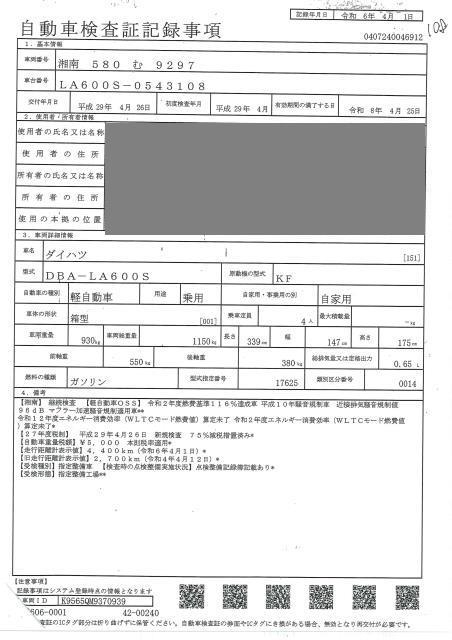 記録年月日 令和 6年 4月 1日
自動車検査証記録事項
0407240046912
1．基本情報
車両番号 湘南 580 む 9297
車台番号 LA600S-0543108
交付年月日 平成29年 4月 26日 初度検査年月 平成29年 4月 有効期間の満了する日 令和 8年 4月 25日
2．使用者/所有者情報
使用者の氏名又は名称
使用者の住所
所有者の氏名又は名称
所有者の住所
使用の本拠の位置
3．車両詳細情報
車名 ダイハツ [151]
型式 DBA-LA600S 原動機の型式 KF
自動車の種別 軽自動車 用途 乗用 自家用・事業用の別 自家用
車体の形状 箱型 [001] 乗車定員 4人 最大積載量 -kg
車両重量 930kg 車両総重量 1150kg 長さ 339cm 幅 147cm 高さ 175cm
前軸重 550kg 後軸重 380kg 総排気量又は定格出力 0.65 L
燃料の種類 ガソリン 型式指定番号 17625 類別区分番号 0014
4．備考
【湘南】 継続検査 【軽自動車OSS】 令和2年度燃費基準116％達成車 平成10年騒音規制車 近接排気騒音規制値
96dB マフラー加速騒音規制適用車**
令和12年度エネルギー消費効率（WLTCモード燃費値）算定未了 令和2年度エネルギー消費効率（WLTCモード燃費値
）算定未了*
【27年度税制】 平成29年4月26日 新規検査 75％減税措置済み*
【自動車重量税額】¥5,000 本則税率適用*
【走行距離計表示値】4,400km（令和6年4月1日）*
【旧走行距離計表示値】2,700km（令和4年4月12日）*
【受検種別】指定整備車 【検査時の点検整備実施状況】点検整備記録簿記載あり*
【受検形態】指定整備工場**
【注意事項】
記録事項はシステム登録時点の情報となります
車両ID K9565QM9370939
606-0001 42-00240
証のICタグ部分は折り曲げずに保管ください。自動車検査証の券面やICタグにき損がある場合、無効となり再交付が必要です。